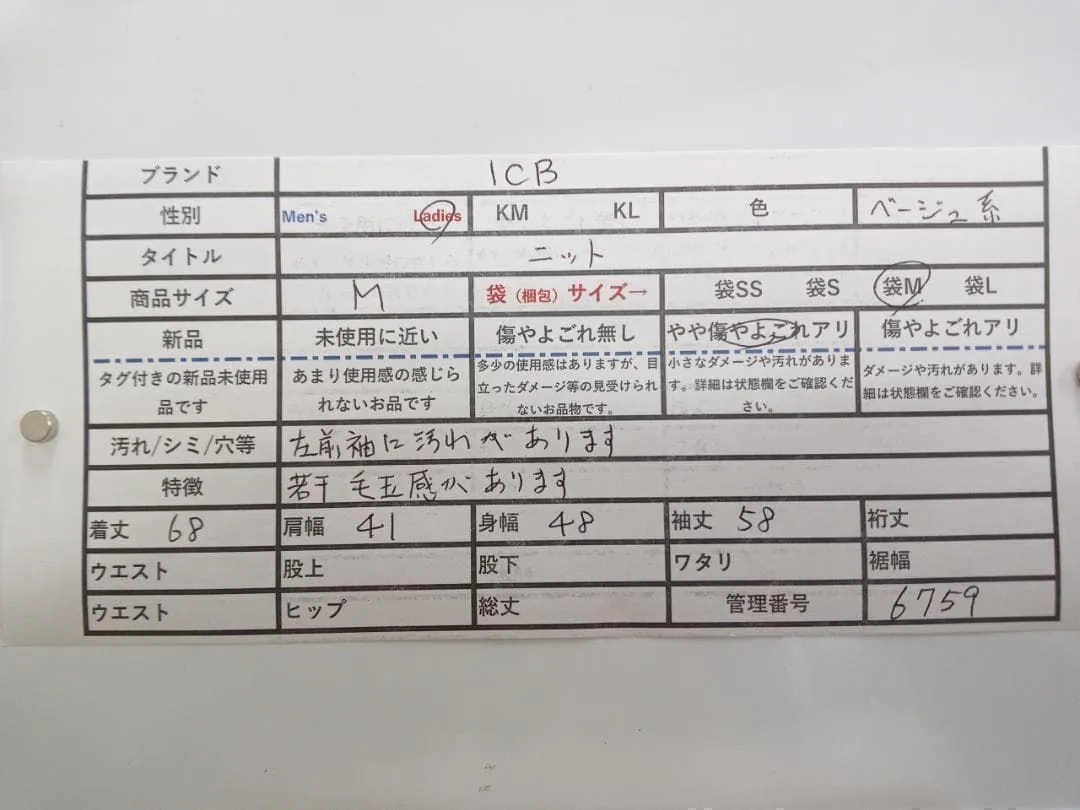 ブランド ICB
性別 Men's Ladies KM KL 色 ベージュ系
タイトル ニット
商品サイズ M 袋（梱包）サイズ→ 袋SS 袋S 袋M 袋L
新品 未使用に近い 傷やよごれ無し やや傷やよごれアリ 傷やよごれアリ
タグ付きの新品未使用
品です
あまり使用感の感じら
れないお品です
多少の使用感はありますが、目
立ったダメージ等の見受けられ
ないお品物です。
小さなダメージや汚れがありま
す。詳細は状態欄をご確認くだ
さい。
ダメージや汚れがあります。詳
細は状態欄をご確認ください。
汚れ/シミ/穴等 左前袖に汚れがあります
特徴 若干毛玉感があります
着丈 68 肩幅 41 身幅 48 袖丈 58 裄丈
ウエスト 股上 股下 ワタリ 裾幅
ウエスト ヒップ 総丈 管理番号 6759